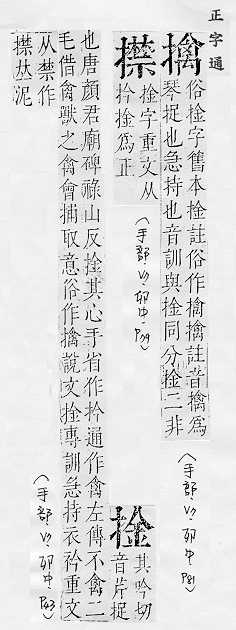 正字通
擒
俗捦字舊本捦註俗作擒擒註音檎爲
琴捉也急持也音訓與捦同分捦二非
(手部. 卯中. P81)
㩒
捦字重文从
扲捦爲正
(手部. 卯中. P79)
捦
其吟切
音芹捉
也唐顏君廟碑祿山反捦其心手省作扲通作禽左傳不禽二
毛借禽獸之禽會捕取意俗作擒說文捦專訓急持衣衿重文
从禁作
㩒𠀤泥
(手部. 卯中. P43)